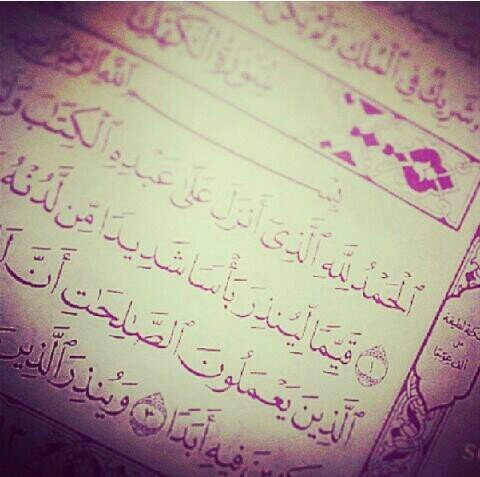 شَرِيكٌ فِي ٱلْمُلْكِ وَلَمْ يَكُن
سُورَةُ الكَهْفِ
بِسْمِ ٱللَّهِ ٱلرَّحْمَٰنِ
ٱلْحَمْدُ لِلَّهِ ٱلَّذِىٓ أَنزَلَ عَلَىٰ عَبْدِهِ ٱلْكِتَٰبَ
١ قَيِّمًا لِّيُنذِرَ بَأْسًا شَدِيدًا مِّن لَّدُنْهُ
ٱلَّذِينَ يَعْمَلُونَ ٱلصَّٰلِحَٰتِ أَنَّ
فِيهِ أَبَدًا ٣ وَيُنذِرَ ٱلَّذِينَ
لطيفة
ألف عوجا